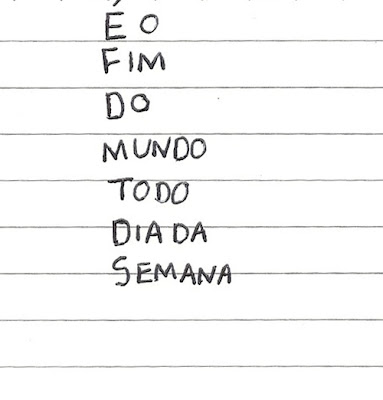 É O
FIM
DO
MUNDO
TODO
DIA DA
SEMANA